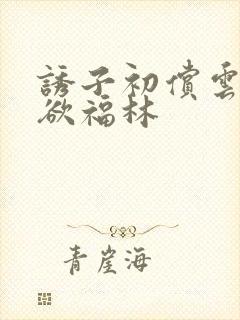 誘子初償雲
欲福林
青崖海